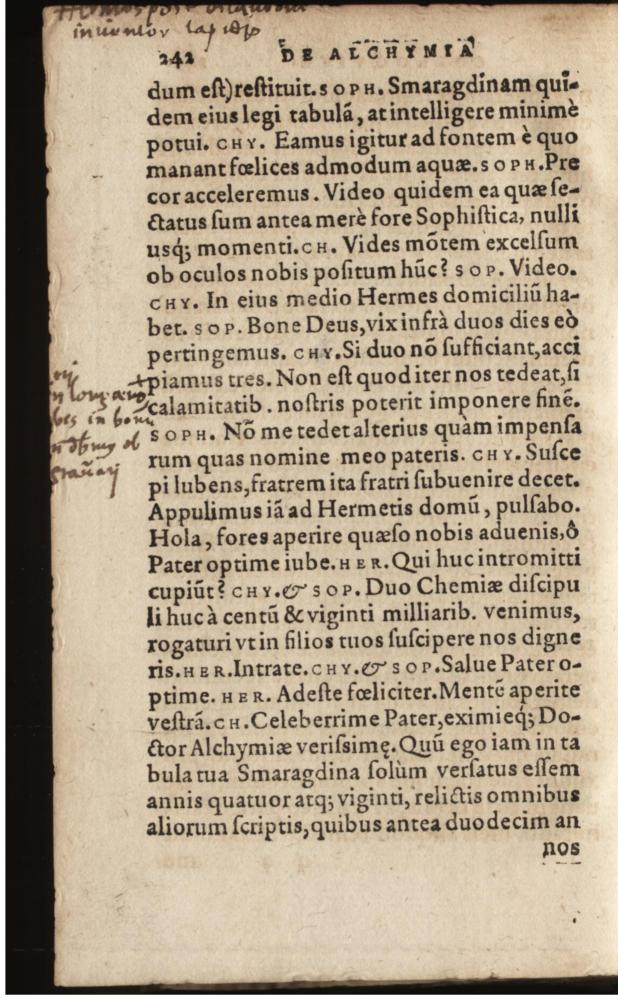 inuentor lapidis
242 DE ALCHYMIA
dum est) restituit. SOPH. Smaragdinam quī-
dem eius legi tabulã, at intelligere minimè
potui. CHY. Eamus igitur ad fontem è quo
manant fœlices admodum aquæ. SOPH. Pre
cor acceleremus. Video quidem ea quæ se-
ctatus sum antea merè fore Sophistica, nulli
usq́; momenti. CH. Vides mõtem excelsum
ob oculos nobis positum hũc? SOP. Video.
CHY. In eius medio Hermes domiciliũ ha-
bet. SOP. Bone Deus, vix infrà duos dies eò
pertingemus. CHY. Si duo nõ sufficiant, acci
piamus tres. Non est quod iter nos tedeat, si
calamitatib. nostris poterit imponere finẽ.
SOPH. Nõ me tedet alterius quàm impensa
rum quas nomine meo pateris. CHY. Susce
pi lubens, fratrem ita fratri subuenire decet.
Appulimus iã ad Hermetis domũ, pulsabo.
Hola, fores aperire quæso nobis aduenis, ô
Pater optime iube. HER. Qui huc intromitti
cupiũt? CHY. & SOP. Duo Chemiæ discipu
li huc à centũ & viginti milliarib. venimus,
rogaturi vt in filios tuos suscipere nos digne
ris. HER. Intrate. CHY. & SOP. Salue Pater o-
ptime. HER. Adeste fœliciter. Mentẽ aperite
vestrã. CH. Celeberrime Pater, eximieq́; Do-
ctor Alchymiæ verissimę. Quũ ego iam in ta
bula tua Smaragdina solùm versatus essem
annis quatuor atq; viginti, relictis omnibus
aliorum scriptis, quibus antea duodecim an
nos